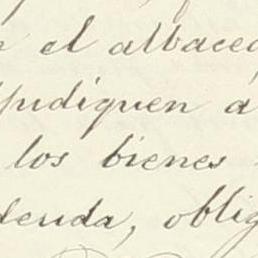 n el albacea
pudiquen a
los bienes
denda, oblig